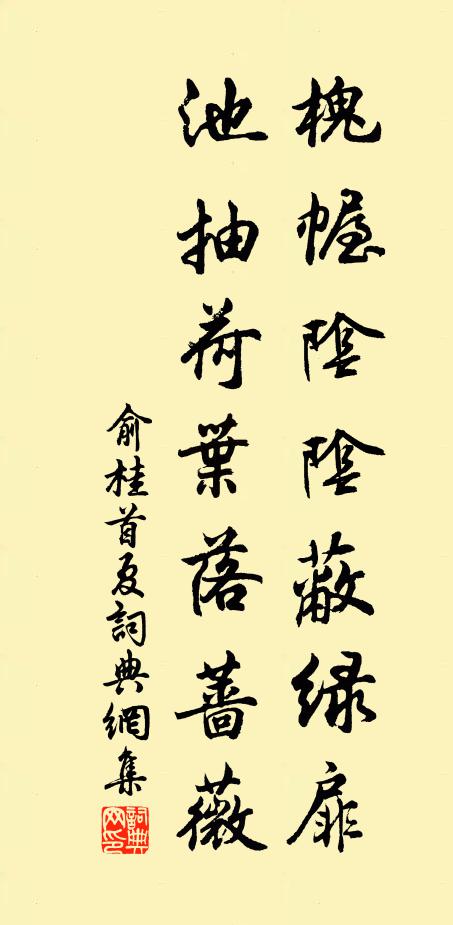 槐幄陰陰蔽緑扉
池抽荷葉落薔薇
俞桂首夏詞典網集
詞典網印